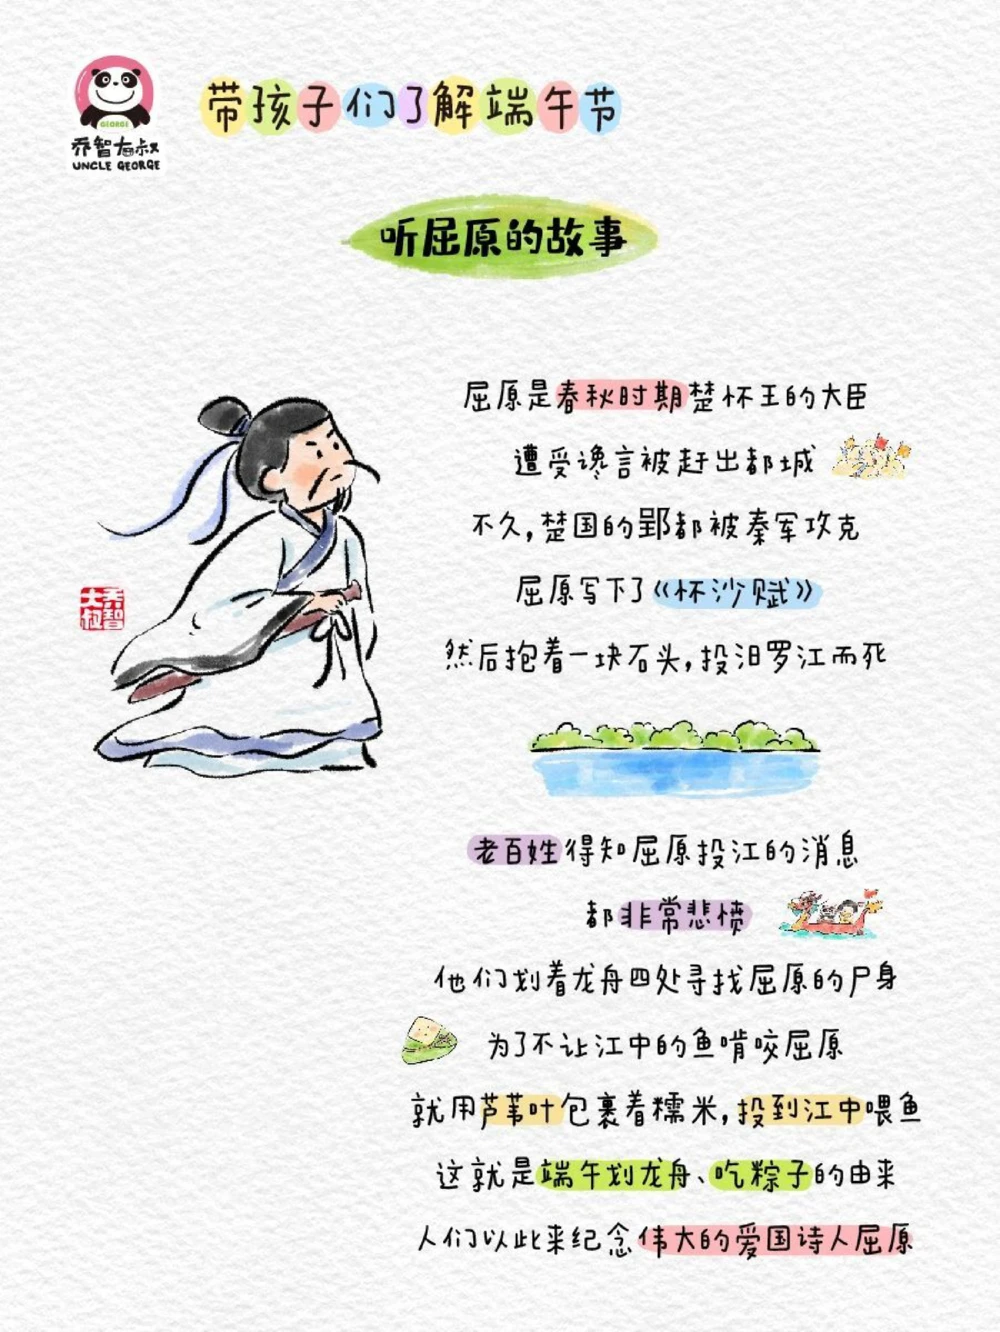 GEORGE
乔智大叔
UNCLE GEORGE
带孩子们了解端午节
听屈原的故事
屈原是春秋时期楚怀王的大臣
遭受谗言被赶出都城
不久,楚国的郢都被秦军攻克
屈原写下了《怀沙赋》
然后抱着一块石头,投汨罗江而死
乔智大叔
老百姓得知屈原投江的消息
都非常悲愤
他们划着龙舟四处寻找屈原的尸身
为了不让江中的鱼啃咬屈原
就用芦苇叶包裹着糯米,投到江中喂鱼
这就是端午划龙舟、吃粽子的由来
人们以此来纪念伟大的爱国诗人屈原